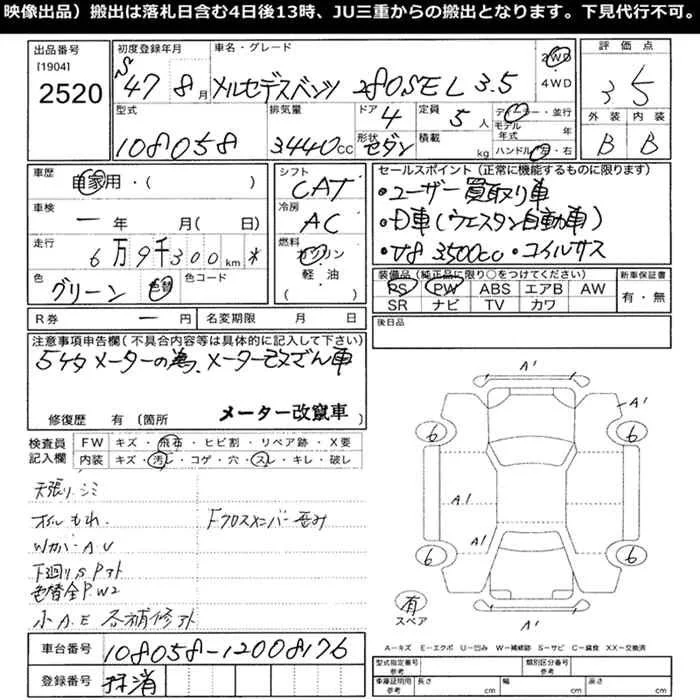 映像出品）搬出は落札日含む4日後13時、JU三重からの搬出となります。下見代行不可。
出品番号
[1904]
2520
初度登録年月
S47 8月
車名・グレード
メルセデスベンツ 280SEL 3.5
2WD
4WD
評価点
3.5
外装 内装
B B
型式
108058
排気量
3440cc
ドア
4
形状
セダン
定員
5人
積載
kg
ディーラー・並行
モデル年式 年
ハンドル 左・右
車歴
自家用・( )
車検
一 年 月( 日)
走行
6万9千300km *
色
グリーン
色替
色コード
シフト
CAT
冷房
AC
燃料
ガソリン
軽・油
( )
セールスポイント(正常に機能するものに限ります)
・ユーザー買取り車
・D車(ウエスタン自動車)
・V8 3500cc・コイルサス
装備品(純正品に限り○をつけてください)
PS PW ABS エアB AW
SR ナビ TV カワ
新車保証書
有・無
R券 一 円
名変期限 月 日
後日品
注意事項申告欄(不具合内容等は具体的に記入して下さい)
5ケタメーターの為、メーター改ざん車
修復歴 有 (箇所
メーター改竄車
検査員記入欄
FW キズ・飛石・ヒビ割・リペア跡・X要
内装 キズ・汚レ・コゲ・穴・スレ・キレ・破レ
天張りシミ
オイルもれ
Fクロスメンバー歪み
WカバーAU
下廻りSPスト
色替全PW2
小A.E 各補修スト
A1
A1
6
6
A1
A1
6
6
有
スペア
A1
A－キズ E－エクボ U－凹み W－補修跡 S－サビ C－腐食 XX－交換済
車台番号
108058-12008176
登録番号
抹消
型式指定番号
参考
類別区分番号
参考
車庫証明用
参考
長さ cm
幅 cm
高さ cm